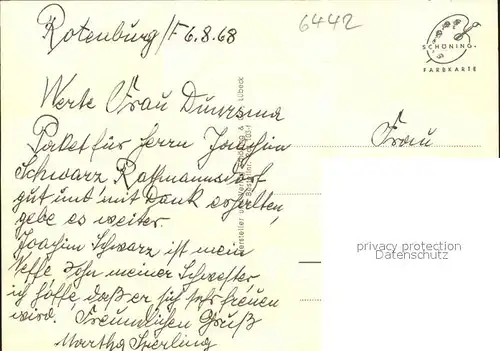 Rotenburg/F 6.8.68
6442
SCHÖNING
FARBKARTE
Werte Frau
Paket für Herrn Joachim
Schwarz Rathmannsdorf
gut und mit Dank erhalten,
gebe es weiter.
Joachim Schwarz ist mein
Neffe Sohn meiner Schwester,
ich hoffe daß er sich sehr freuen
wird. Freundlichen Gruß
Martha Sperling
Frau
Hersteller und Verlag Schöning & Lübeck
Bestellnr.
privacy protection
Datenschutz